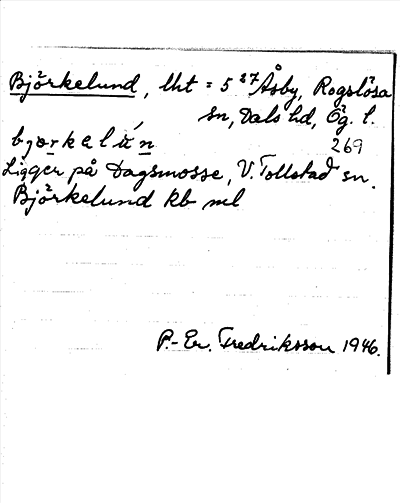 Björkelund, lht = 5 27 Åsby, Rogslösa
sn, Dals hd, Ög. l.
bjørkelún 269
Ligger på Dagsmosse, V. Tollstad sn.
Björkelund kb ml
P.-Er. Fredriksson 1946.